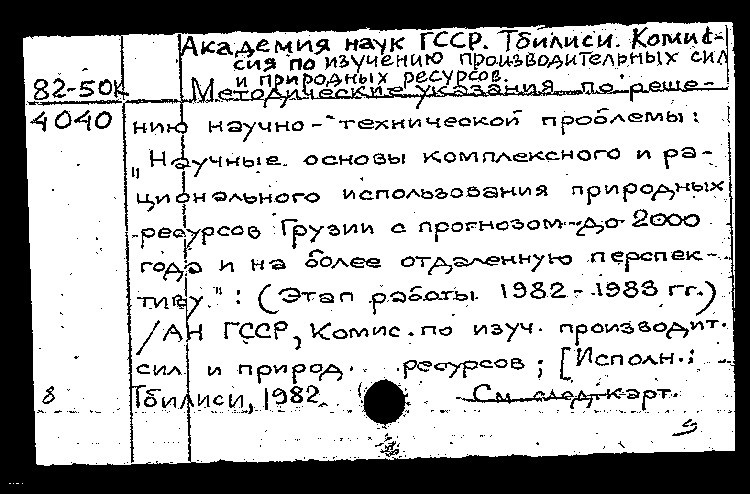 Академия наук ГССР. Тбилиси. Комис-
сия по изучению производительных сил
и природных ресурсов.
82-50К Методические указания по реше-
4040 нию научно-технической проблемы:
„Научные основы комплексного и ра-
ционального использования природных
ресурсов Грузии с прогнозом до 2000
года и на более отдаленную перспек-
тиву": (Этап работы 1982-1983 гг.)
/АН ГССР, Комис. по изуч. производит.
сил и природ. ресурсов; [Исполн.:
8 Тбилиси, 1982 См. след. карт.